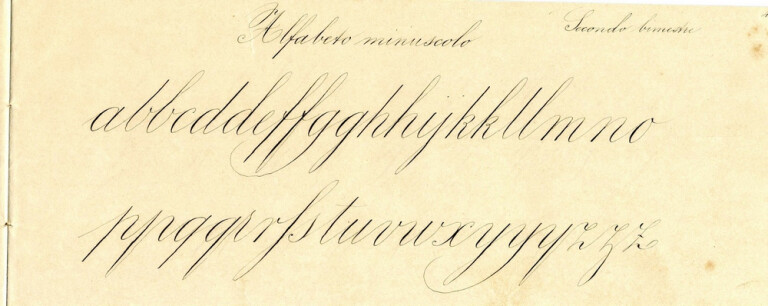 Alfabeto minuscolo
Secondo bimestre
abbcddeffgghhijkkllmno
ppqqrrſstuvwxyyyzzz